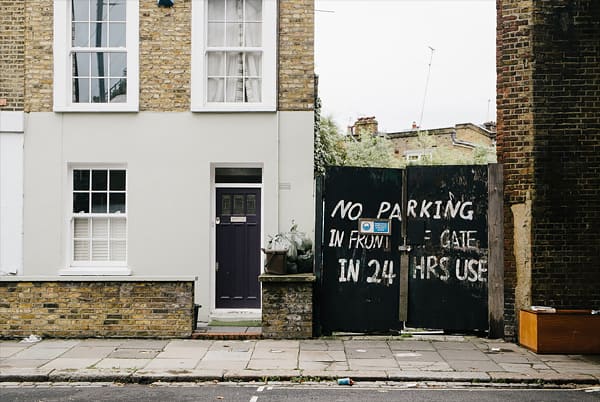 NO PARKING
IN FRONT F GATE
IN 24 HRS USE